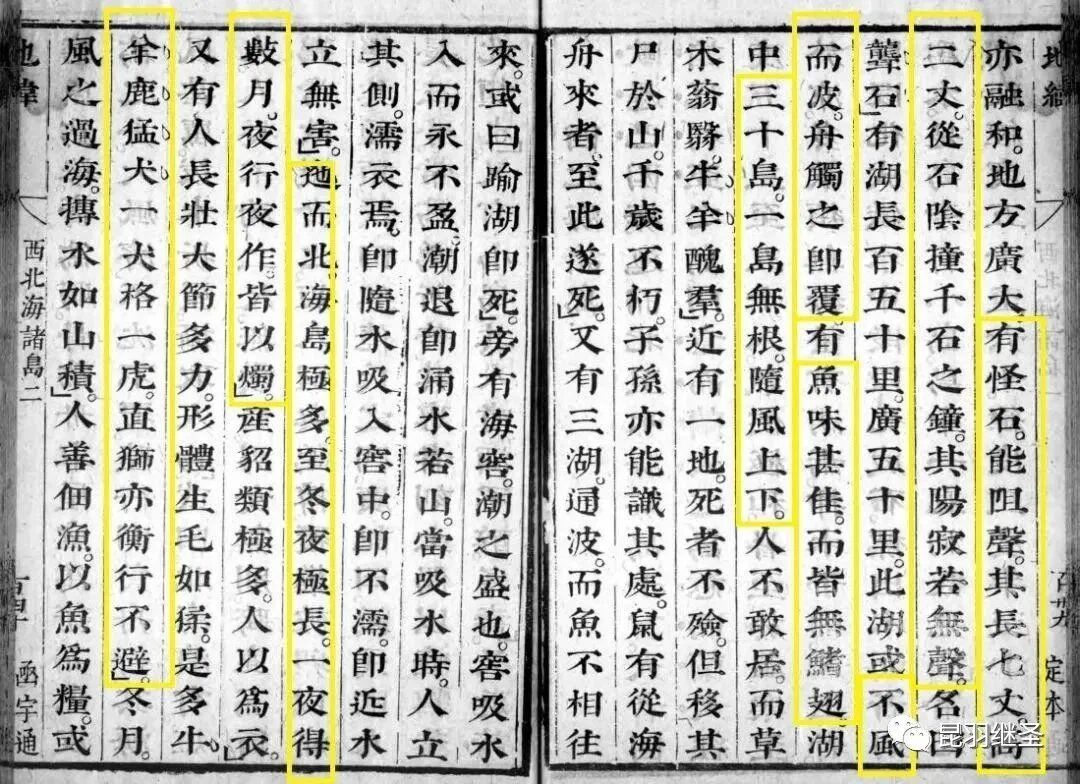 地緯
定本
亦融和。地方廣大。有怪石。能阻聲。其長七丈。高
二丈。從石陰撞千石之鐘。其陽寂若無聲。名曰
聾石。有湖長百五十里。廣五十里。此湖或不風
而波。舟觸之卽覆。有魚味甚佳。而皆無鰭翅。湖
中三十島。一島無根。隨風上下。人不敢居。而草
木蓊翳。牛羊醜羣。近有一地。死者不殮。但移其
尸於山。千歲不朽。子孫亦能識其處。鼠有從海
舟來者。至此遂死。又有三湖。通波。而魚不相往
來。或曰踰湖卽死。旁有海窖。潮之盛也。窖吸水
入而永不盈。潮退卽涌水若山。當吸水時。人立
其側。濡衣焉。卽隨水吸入窖中。卽不濡。卽近水
立無害。迤而北。海島極多。至冬夜極長。一夜得
數月。夜行夜作。皆以燭。產貂類極多。人以爲衣。
又有人長壯大節多力。形體生毛如猱。是多牛
羊鹿猛犬。一犬格一虎。直獅亦衡行不避。冬月。
風之過海。摶水如山積。人善佃漁。以魚爲糧。或
地緯
西北海諸島二
函宇通
昆羽继圣